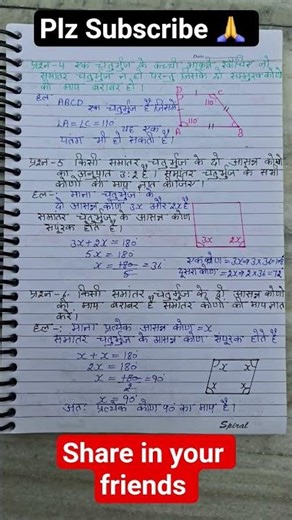 Plz Subscribe 🙏
प्रश्न-4 एक चतुर्भुज की कच्ची आकृति खींचिए जो
समांतर चतुर्भुज न हो परन्तु जिसके दो सम्मुख कोणों
की माप बराबर हो।
हल
ABCD एक चतुर्भुज है जिसमें
LA = LC = 110
यह एक
पतंग भी हो सकती है।
D
C
110°
110°
A
B
प्रश्न-5 किसी समांतर चतुर्भुज के दो आसन्न कोणों
का अनुपात 3:2 है। समांतर चतुर्भुज के सभी
कोणों की माप ज्ञात कीजिए।
हल-: माना चतुर्भुज के
दो आसन्न कोण 3x और 2x है
समांतर चतुर्भुज के आसन्न कोण
संपूरक होते है।
3x 2x
3x + 2x = 180°
5x = 180°
x = 180/5 = 36°
एक कोण = 3x = 3x36 =
दूसरा कोण = 2x = 2x36 = 72°
प्रश्न-6 किसी समांतर चतुर्भुज के दो आसन्न कोणों
की माप बराबर है समांतर चतुर्भुज के सभी कोणों की माप ज्ञात
करें।
हल-: माना प्रत्येक आसन्न कोण = x
समांतर चतुर्भुज के आसन्न कोण संपूरक होते है
x + x = 180°
2x = 180°
x = 180/2 = 90°
x = 90°
x x
x x
अतः प्रत्येक कोण 90° का माप है।
Spiral
Share in your
friends